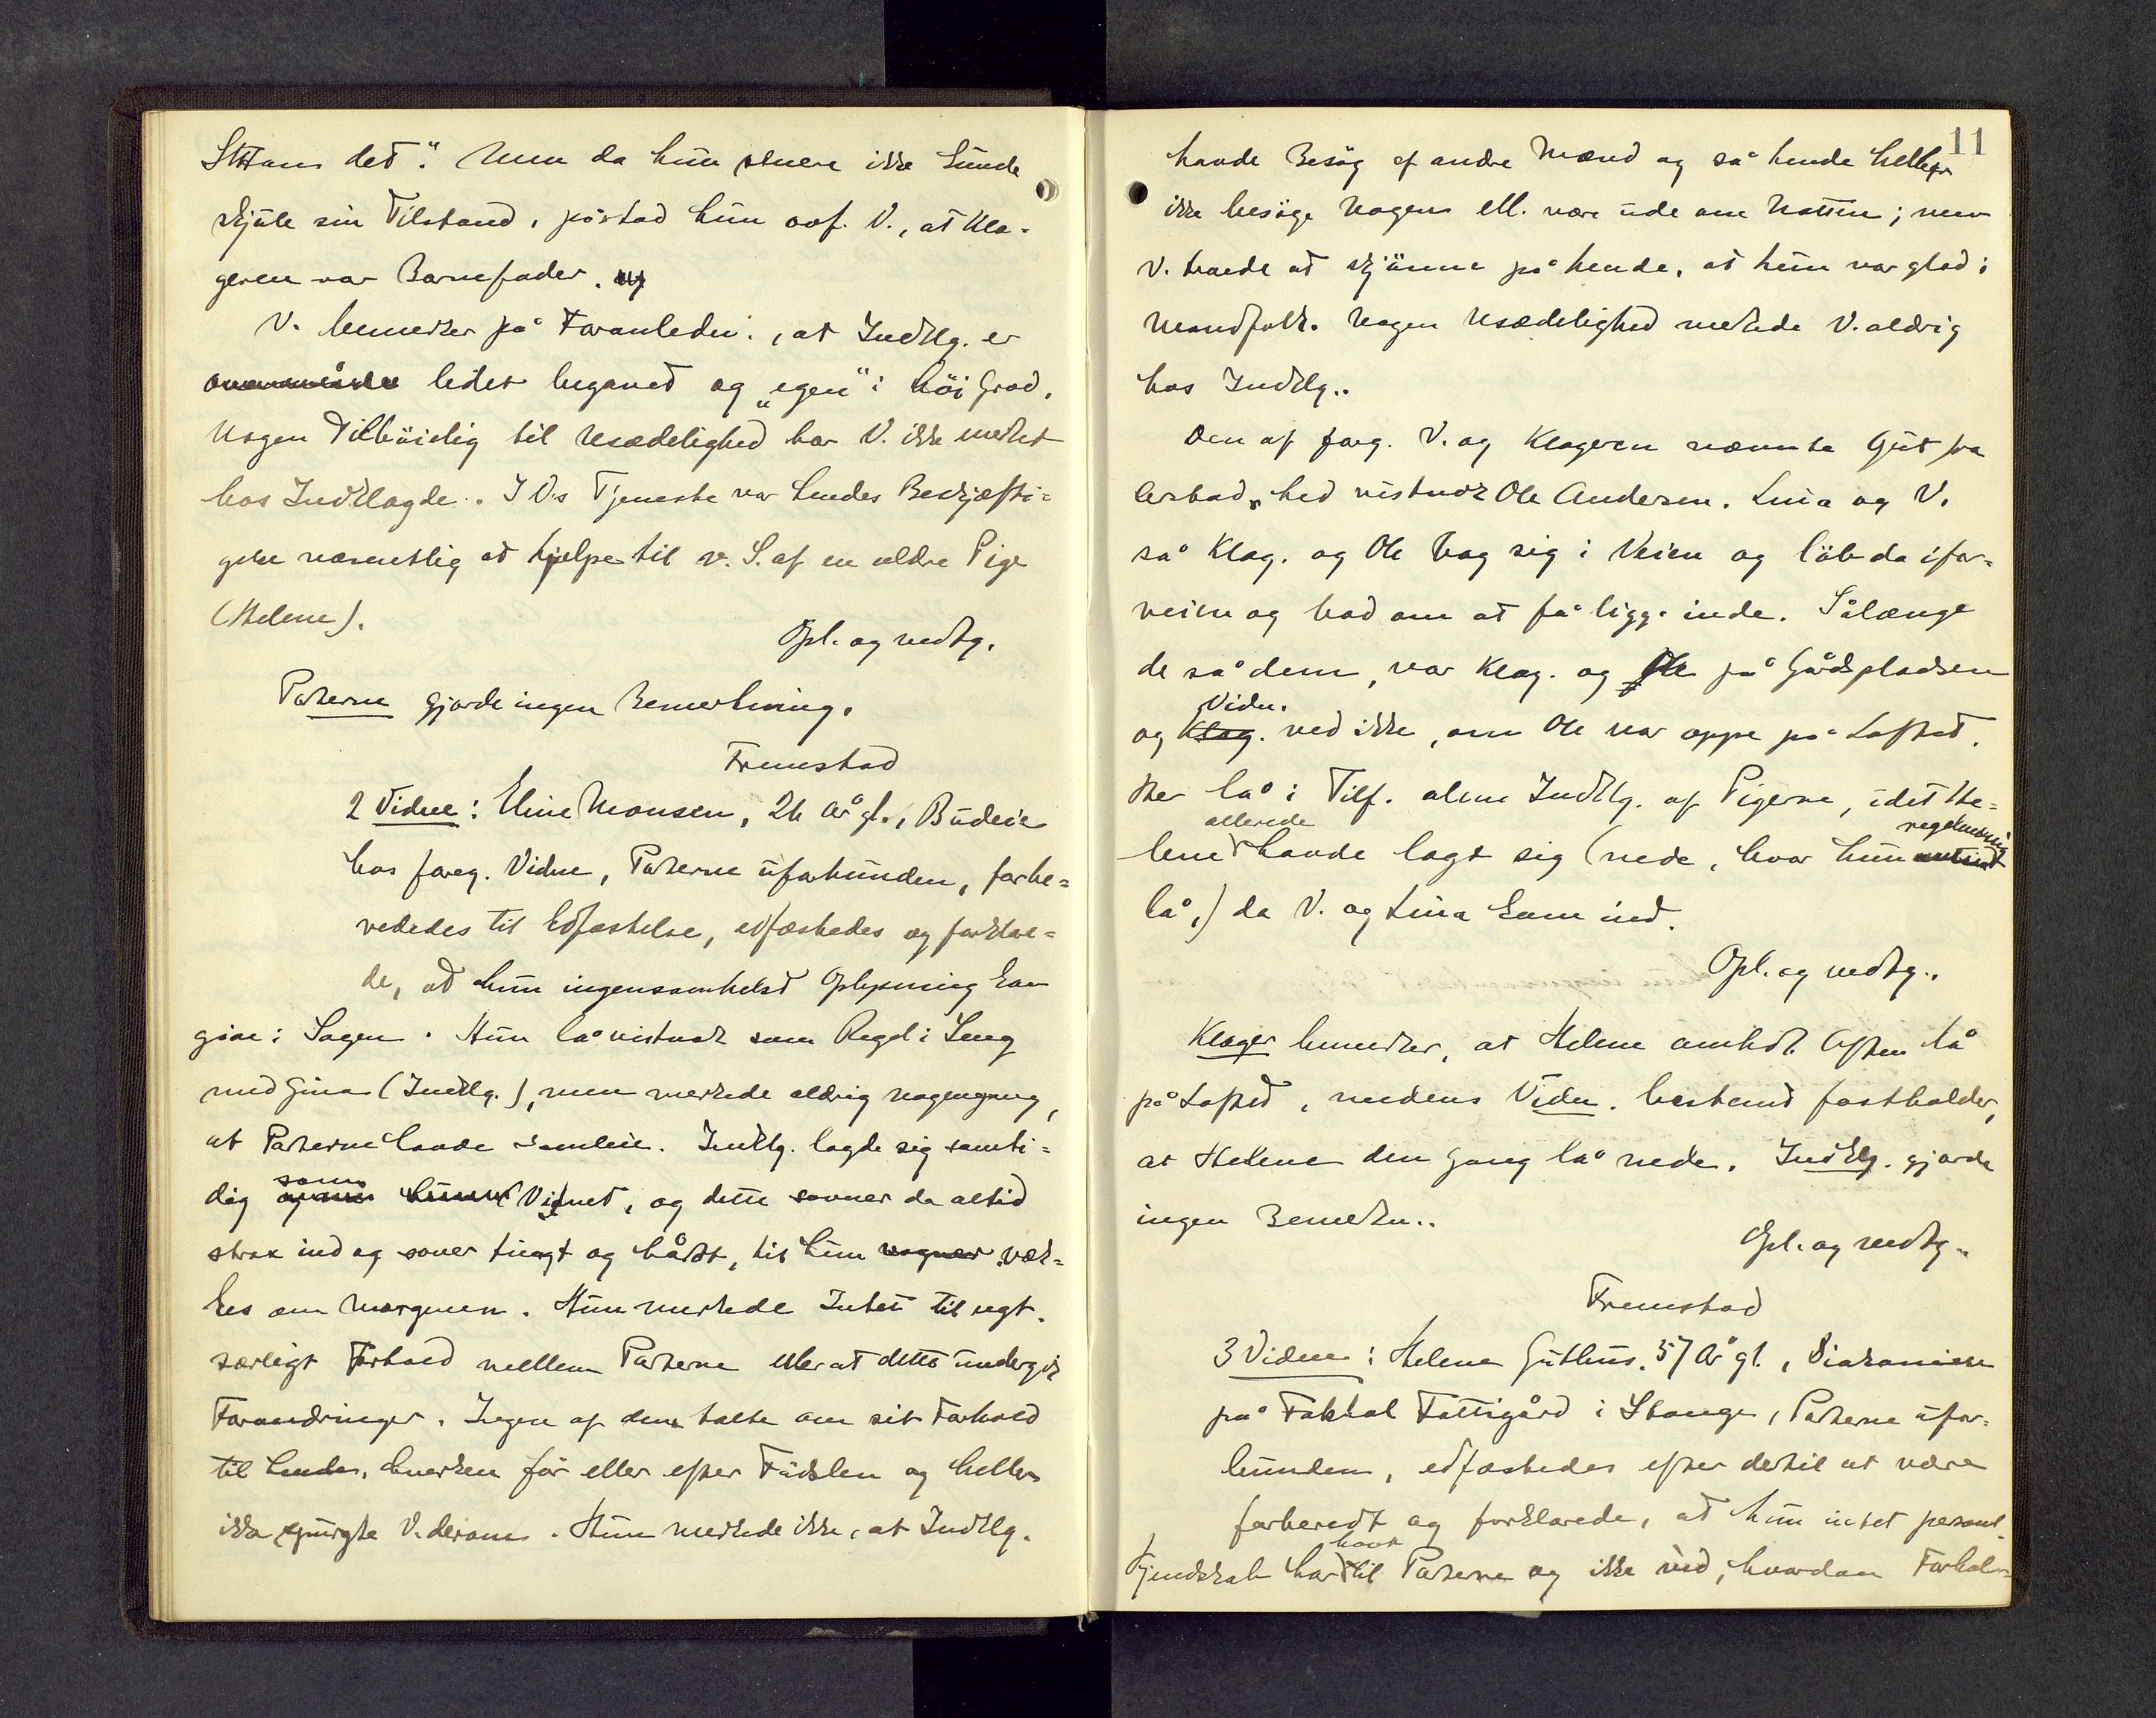 StHans det". Men da hun senere ikke kunde
skjule sin Tilstand, påstod hun ovf. V., at Kla-
geren var Barnefader.
V. bemerker på Foranledn., at Indklg. er
lidet begavet og "egen" i høi Grad.
Nogen Tilbøielig til Usædelighed har V. ikke merket
hos Indklagde. I V.s Tjeneste var hendes Beskjæfti-
gelse væsentlig at hjelpe til v. S. af en eldre Pige
(Helene).
Opl. og vedtg.
Parterne gjorde ingen Bemerkning.
Fremstod
2 Vidne: Eline Monsen, 26 År gl., Budeie
hos foreg. Vidne, Parterne uforbunden, forbe-
rededes til Edfæstelse, edfæstedes og forklare-
de, at hun ingensomhelst Oplysning kan
give i Sagen. Hun lå vistnok som Regel i Seng
med Gina (Indklg.), men merkede aldrig nogengang,
at Parterne havde Samleie. Indklg. lagde sig samti-
dig som Vidnet, og dette sovner da altid
strax ind og sover tungt og hårdt, til hun vogner væk-
kes om Morgenen. Hun merkede Intet til ngt.
særligt Forhold mellem Parterne eller at dette undergik
Forandringer. Ingen af dem talte om sit Forhold
til hende, hverken før eller efter Fødslen og heller
ikke spurgte V. derom. Hun merkede ikke, at Indklg.
11
havde Besøg af andre Mænd og så hende heller
ikke besøge Nogen ell. være ude om Natten; men
V. troede at skjønne på hende, at hun var glad i
Mandfolk. Nogen Usædelighed merkede V. aldrig
hos Indklg..
Den af forg. V. og Klageren nævnte Gut fra
hed vistnok Ole Andersen. Lina og V.
så Klag. og Ole tog sig i Veien og løb da ifor-
veien og bad om at få ligge inde. Sålænge
de så dem, var Klag. og Ole på Gårdspladsen
Vidn.
og Klag. ved ikke, om Ole var oppe på Loftet.
Her lå i Tilf. alene Indklg. af Pigerne, idet He-
allerede regelmæssig
lene havde lagt sig (nede, hvor hun
lå,) da V. og Lina kom ind.
Opl. og vedtg..
Klager bemerker, at Helene omhdl. Aften lå
på Loftet, medens Vidn. bestemt fastholder,
at Helene den Gang lå nede. Indklg. gjorde
ingen Bemerkn..
Opl. og vedtg..
Fremstod
3 Vidne: Helene Guthus, 57 År gl., Diakonisse
på Fokhol Fattigård i Stange, Parterne ufor-
bunden, edfæstedes efter dertil at være
forberedt og forklarede, at hun intet personl.
havt
Kjendskab har til Parterne og ikke ved, hvordan Forhol-